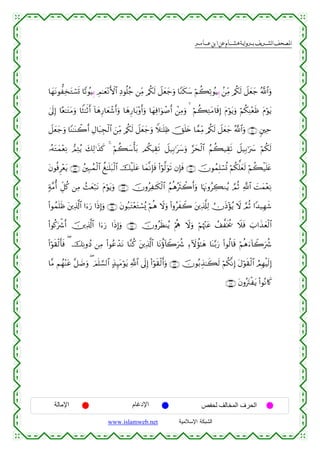 المصحف الشريف برواية هشام عن ابن عامر
وَٱللَّهُ جَعَلَ لَكُم مِّنۢ بِيُوتِكُمْ سَكَنًا وَجَعَلَ لَكُم مِّن جُلُودِ ٱلْأَنْعَٰمِ بِيُوتًا تَسْتَخِفُّونَهَا
يَوْمَ ظَعْنِكُمْ وَيَوْمَ إِقَامَتِكُمْ ۙ وَمِنْ أَصْوَافِهَا وَأَوْبَارِهَا وَأَشْعَارِهَا أَثَٰثًا وَمَتَٰعًا إِلَىٰ
حِينٍ ۝ وَٱللَّهُ جَعَلَ لَكُم مِّمَّا خَلَقَ ظِلَٰلًا وَجَعَلَ لَكُم مِّنَ ٱلْجِبَالِ أَكْنَٰنًا وَجَعَلَ
لَكُمْ سَرَٰبِيلَ تَقِيكُمُ ٱلْحَرَّ وَسَرَٰبِيلَ تَقِيكُم بَأْسَكُمْ ۚ كَذَٰلِكَ يُتِمُّ نِعْمَتَهُۥ
عَلَيْكُمْ لَعَلَّكُمْ تُسْلِمُونَ ۝ فَإِن تَوَلَّوْا۟ فَإِنَّمَا عَلَيْكَ ٱلْبَلَٰغُ ٱلْمُبِينُ ۝ يَعْرِفُونَ
نِعْمَتَ ٱللَّهِ ثُمَّ يُنكِرُونَهَا وَأَكْثَرُهُمُ ٱلْكَٰفِرُونَ ۝ وَيَوْمَ نَبْعَثُ مِن كُلِّ أُمَّةٍ
شَهِيدًا ثُمَّ لَا يُؤْذَنُ لِلَّذِينَ كَفَرُوا۟ وَلَا هُمْ يُسْتَعْتَبُونَ ۝ وَإِذَا رَءَا ٱلَّذِينَ ظَلَمُوا۟
ٱلْعَذَابَ فَلَا يُخَفَّفُ عَنْهُمْ وَلَا هُمْ يُنظَرُونَ ۝ وَإِذَا رَءَا ٱلَّذِينَ أَشْرَكُوا۟
شُرَكَآءَهُمْ قَالُوا۟ رَبَّنَا هَٰٓؤُلَآءِ شُرَكَآؤُنَا ٱلَّذِينَ كُنَّا نَدْعُوا۟ مِن دُونِكَ ۖ فَأَلْقَوْا۟
إِلَيْهِمُ ٱلْقَوْلَ إِنَّكُمْ لَكَٰذِبُونَ ۝ وَأَلْقَوْا۟ إِلَى ٱللَّهِ يَوْمَئِذٍ ٱلسَّلَمَ ۖ وَضَلَّ عَنْهُم مَّا
كَانُوا۟ يَفْتَرُونَ ۝
الحرف المخالف لحفص الإدغام الإمالة
الشبكة الإسلامية www.islamweb.net